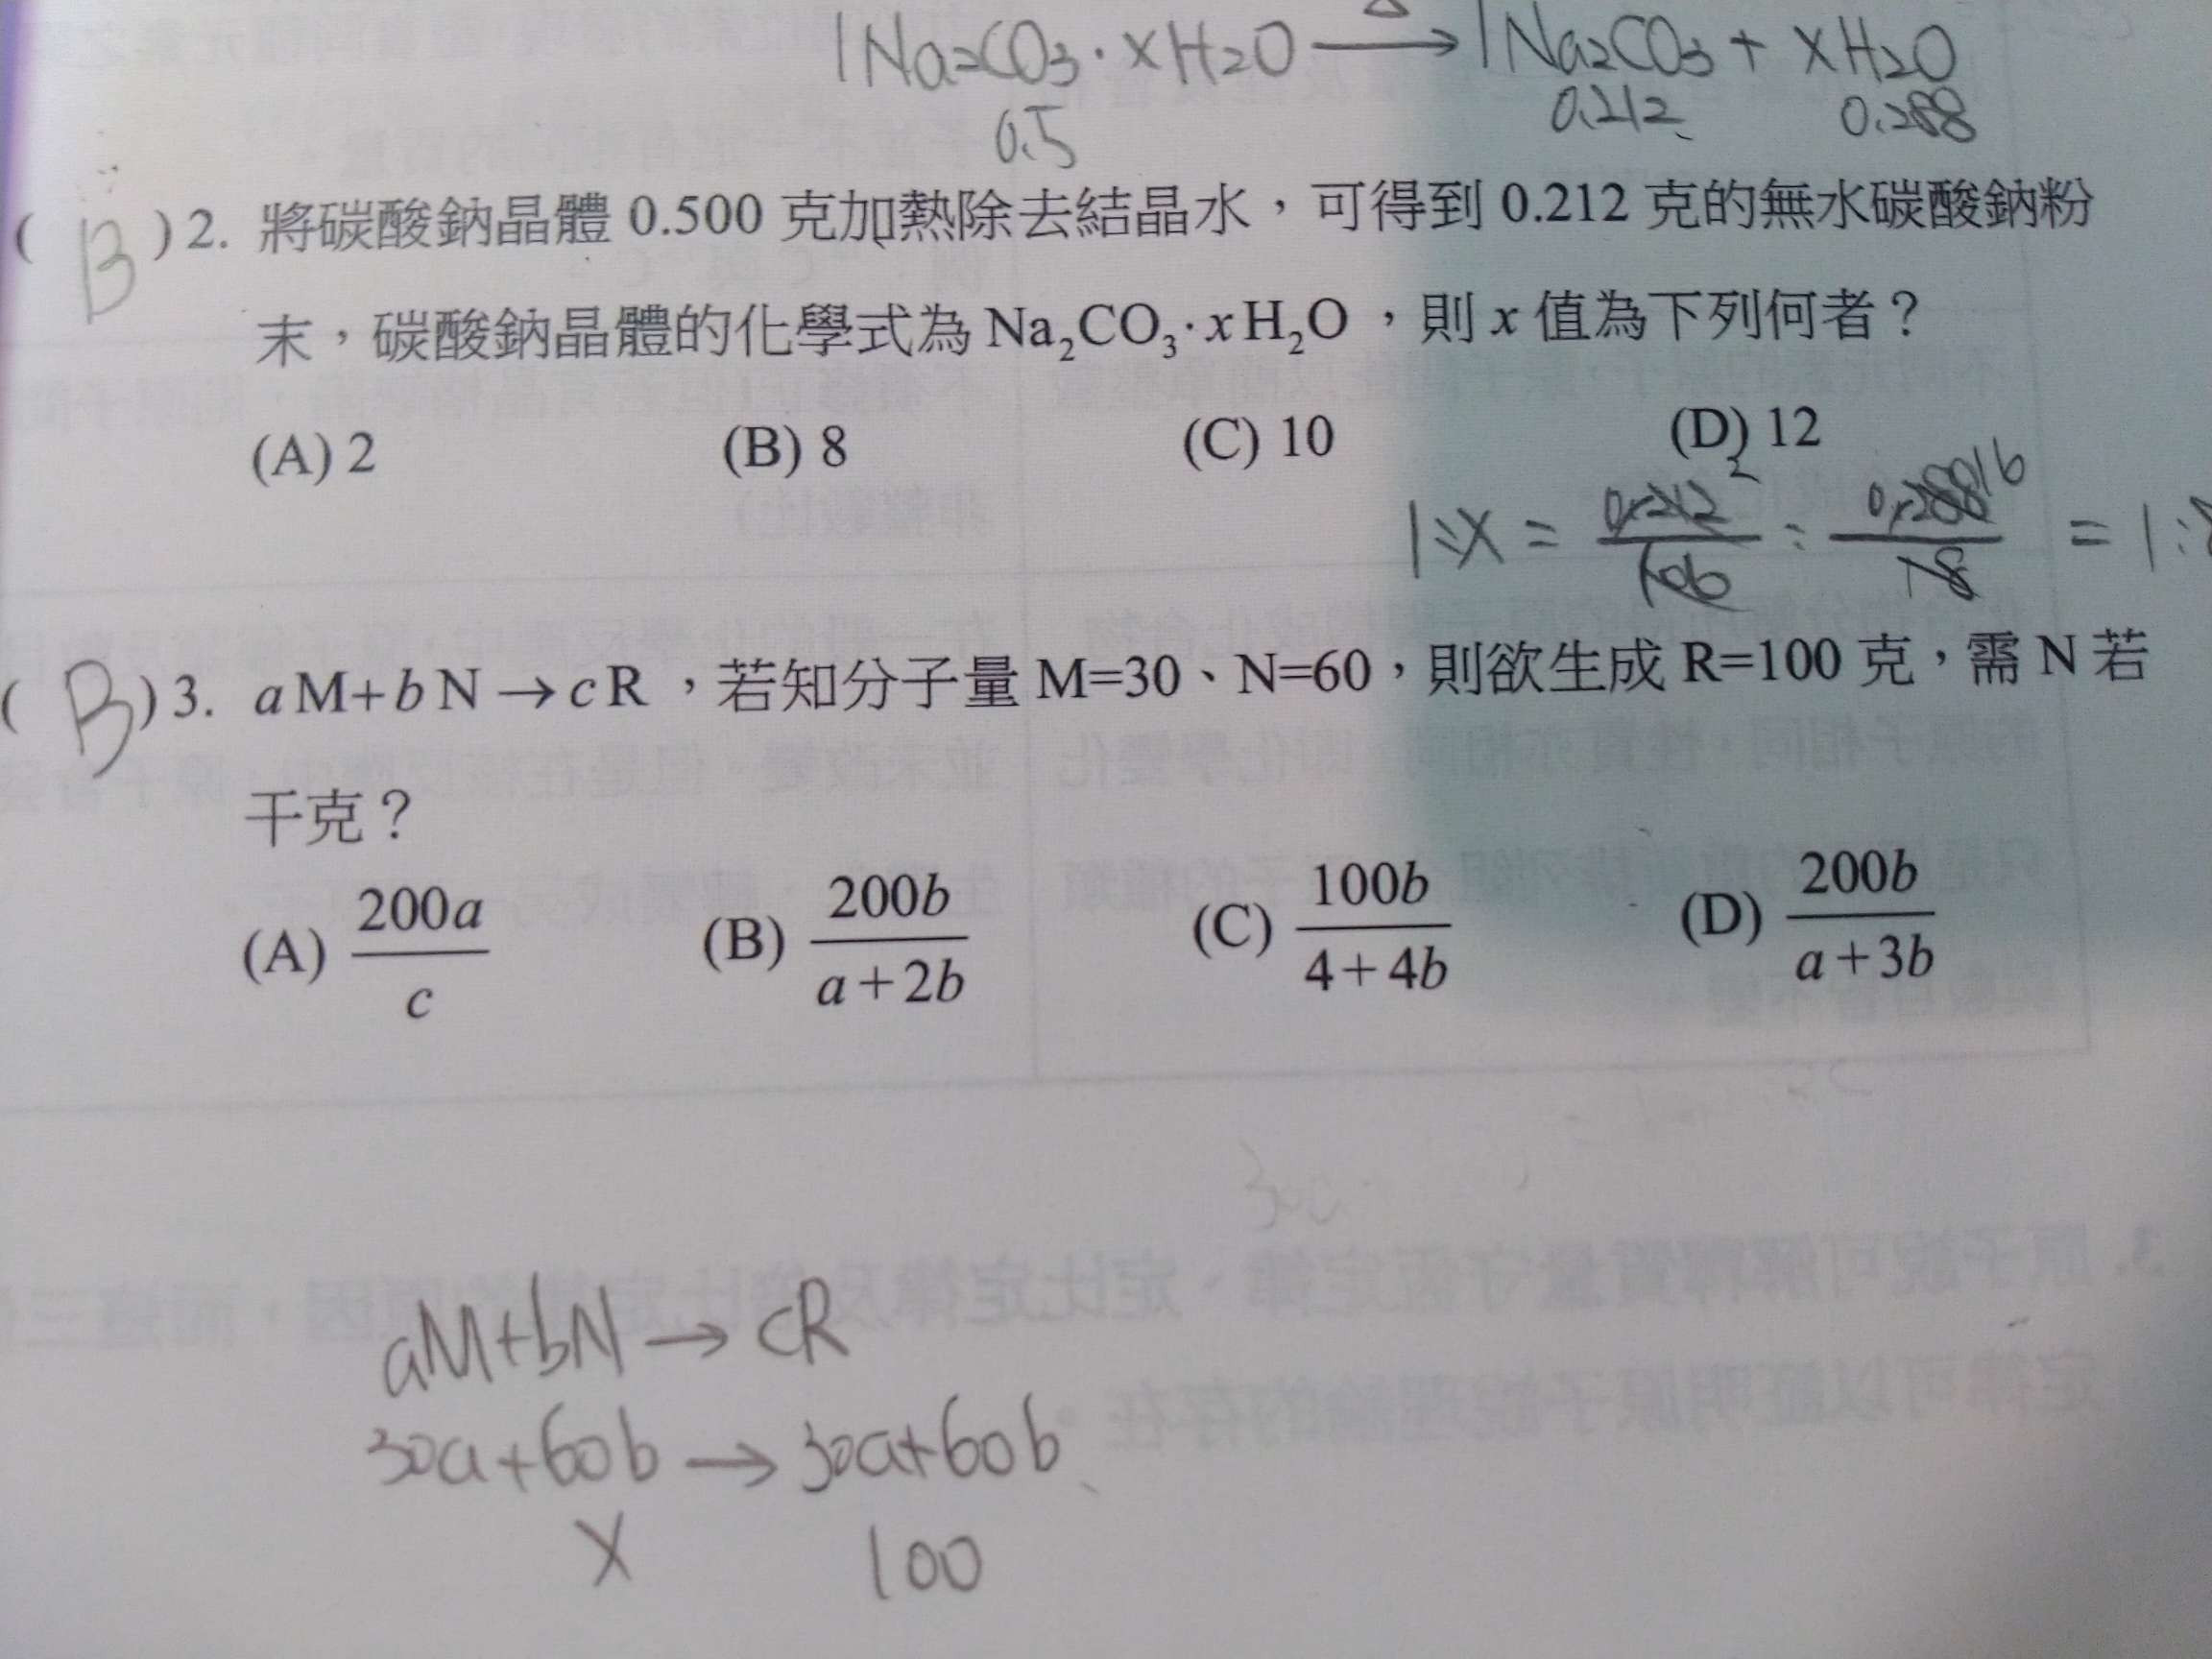 1Na2CO3·xH2O →△ 1Na2CO3 + xH2O
0.5 0.212 0.288
( B )2. 將碳酸鈉晶體 0.500 克加熱除去結晶水，可得到 0.212 克的無水碳酸鈉粉
末，碳酸鈉晶體的化學式為 Na₂CO₃·xH₂O ，則 x 值為下列何者？
(A) 2 (B) 8 (C) 10 (D) 12
1:x = 0.212/106 2 : 0.288/18 16 = 1:
( B )3. aM+bN→cR ，若知分子量 M=30、N=60，則欲生成 R=100 克，需 N 若
干克？
(A) 200a/c (B) 200b/a+2b (C) 100b/4+4b (D) 200b/a+3b
aM+bN→cR
30a+60b→30a+60b
X 100